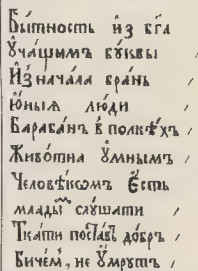 Бы́тность и҆з̾ бг҃а
Оу҆ча́щымъ бꙋ́квы
И҆з̾нача́ла бра́нь /
Ю҆́ныѧ лю́ди /
Бараба́нъ в̾ полкѣ́хъ /
Живо́тна ᲂу҆́мнымъ /
Человѣ́кѡмъ Є҆́сть
млады̑ слꙋ́шати /
Тка́ти поста́въ до́бръ /
Биче́мъ, не ᲂу҆́мрꙋтъ /